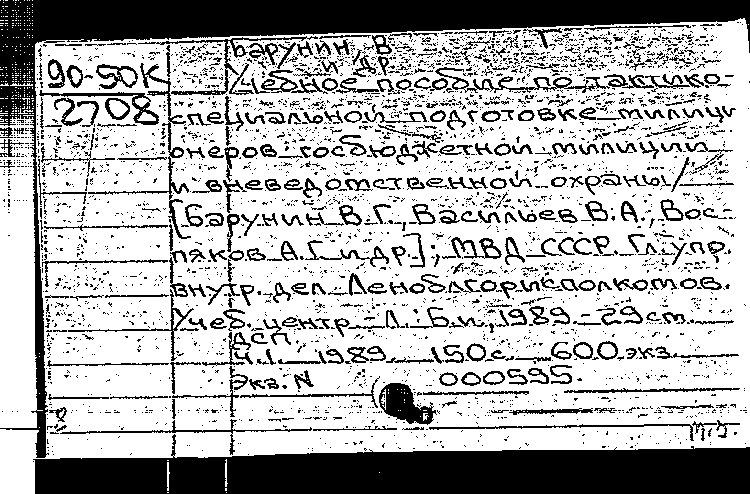 Барунин, В
и др.
90-50К
Учебное пособие по тактико-
2708
специальной подготовке милици
онеров госбюджетной милиции
и вневедомственной охраны/
[Барунин В.Г., Васильев В.А., Вос-
пяков А.Г. и др.]; МВД СССР. Гл. упр.
внутр. дел Леноблгорисполкомов.
Учеб. центр.-Л.: Б.и., 1989.-29 см.
ДСП
Ч.1. 1989. 150 с. 600 экз.
Экз. N 000595.